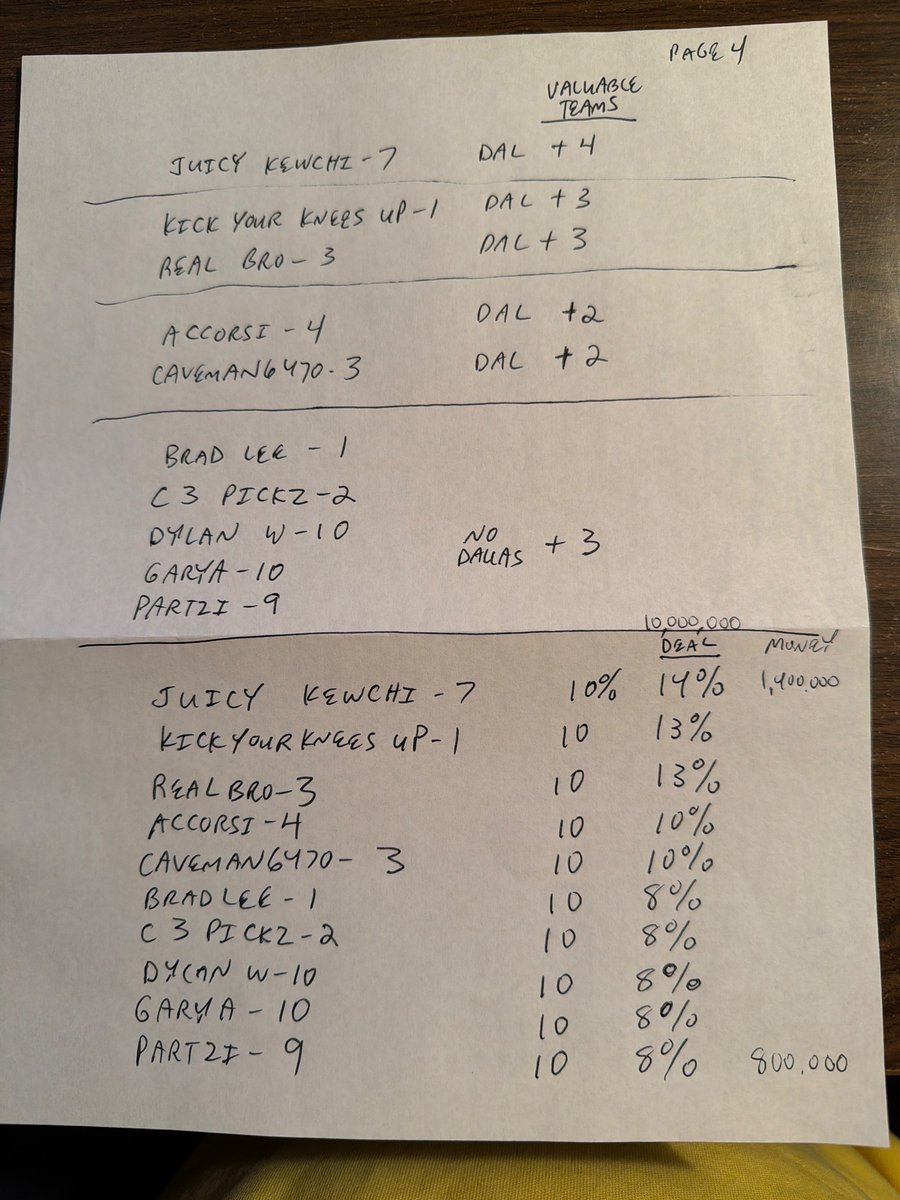 PAGE 4
VALUABLE
TEAMS
JUICY KEWCHI - 7 DAL + 4
KICK YOUR KNEES UP - 1 DAL + 3
REAL BRO - 3 DAL + 3
ACCORSI - 4 DAL + 2
CAVEMAN6470 - 3 DAL + 2
BRAD LEE - 1
C 3 PICKZ - 2
DYLAN W - 10 NO DALLAS + 3
GARYA - 10
PARTZI - 9
10,000,000
DEAL MONEY
JUICY KEWCHI - 7 10% 14% 1,400,000
KICK YOUR KNEES UP - 1 10 13%
REAL BRO - 3 10 13%
ACCORSI - 4 10 10%
CAVEMAN6470 - 3 10 10%
BRAD LEE - 1 10 8%
C 3 PICKZ - 2 10 8%
DYLAN W - 10 10 8%
GARYA - 10 10 8%
PARTZI - 9 10 8% 800,000